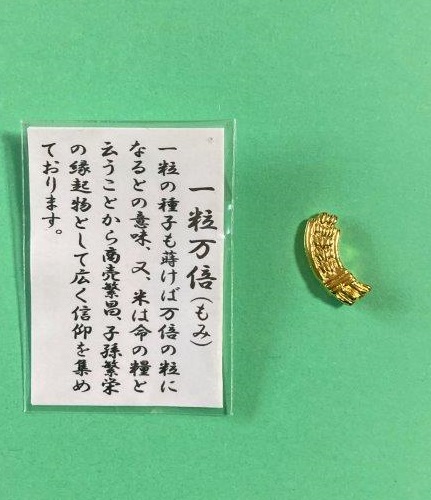 一粒万倍(もみ)
一粒の種子も蒔けば万倍の粒に
なるとの意味、又、米は命の糧と
云うことから商売繁昌、子孫繁栄
の縁起物として広く信仰を集め
ております。